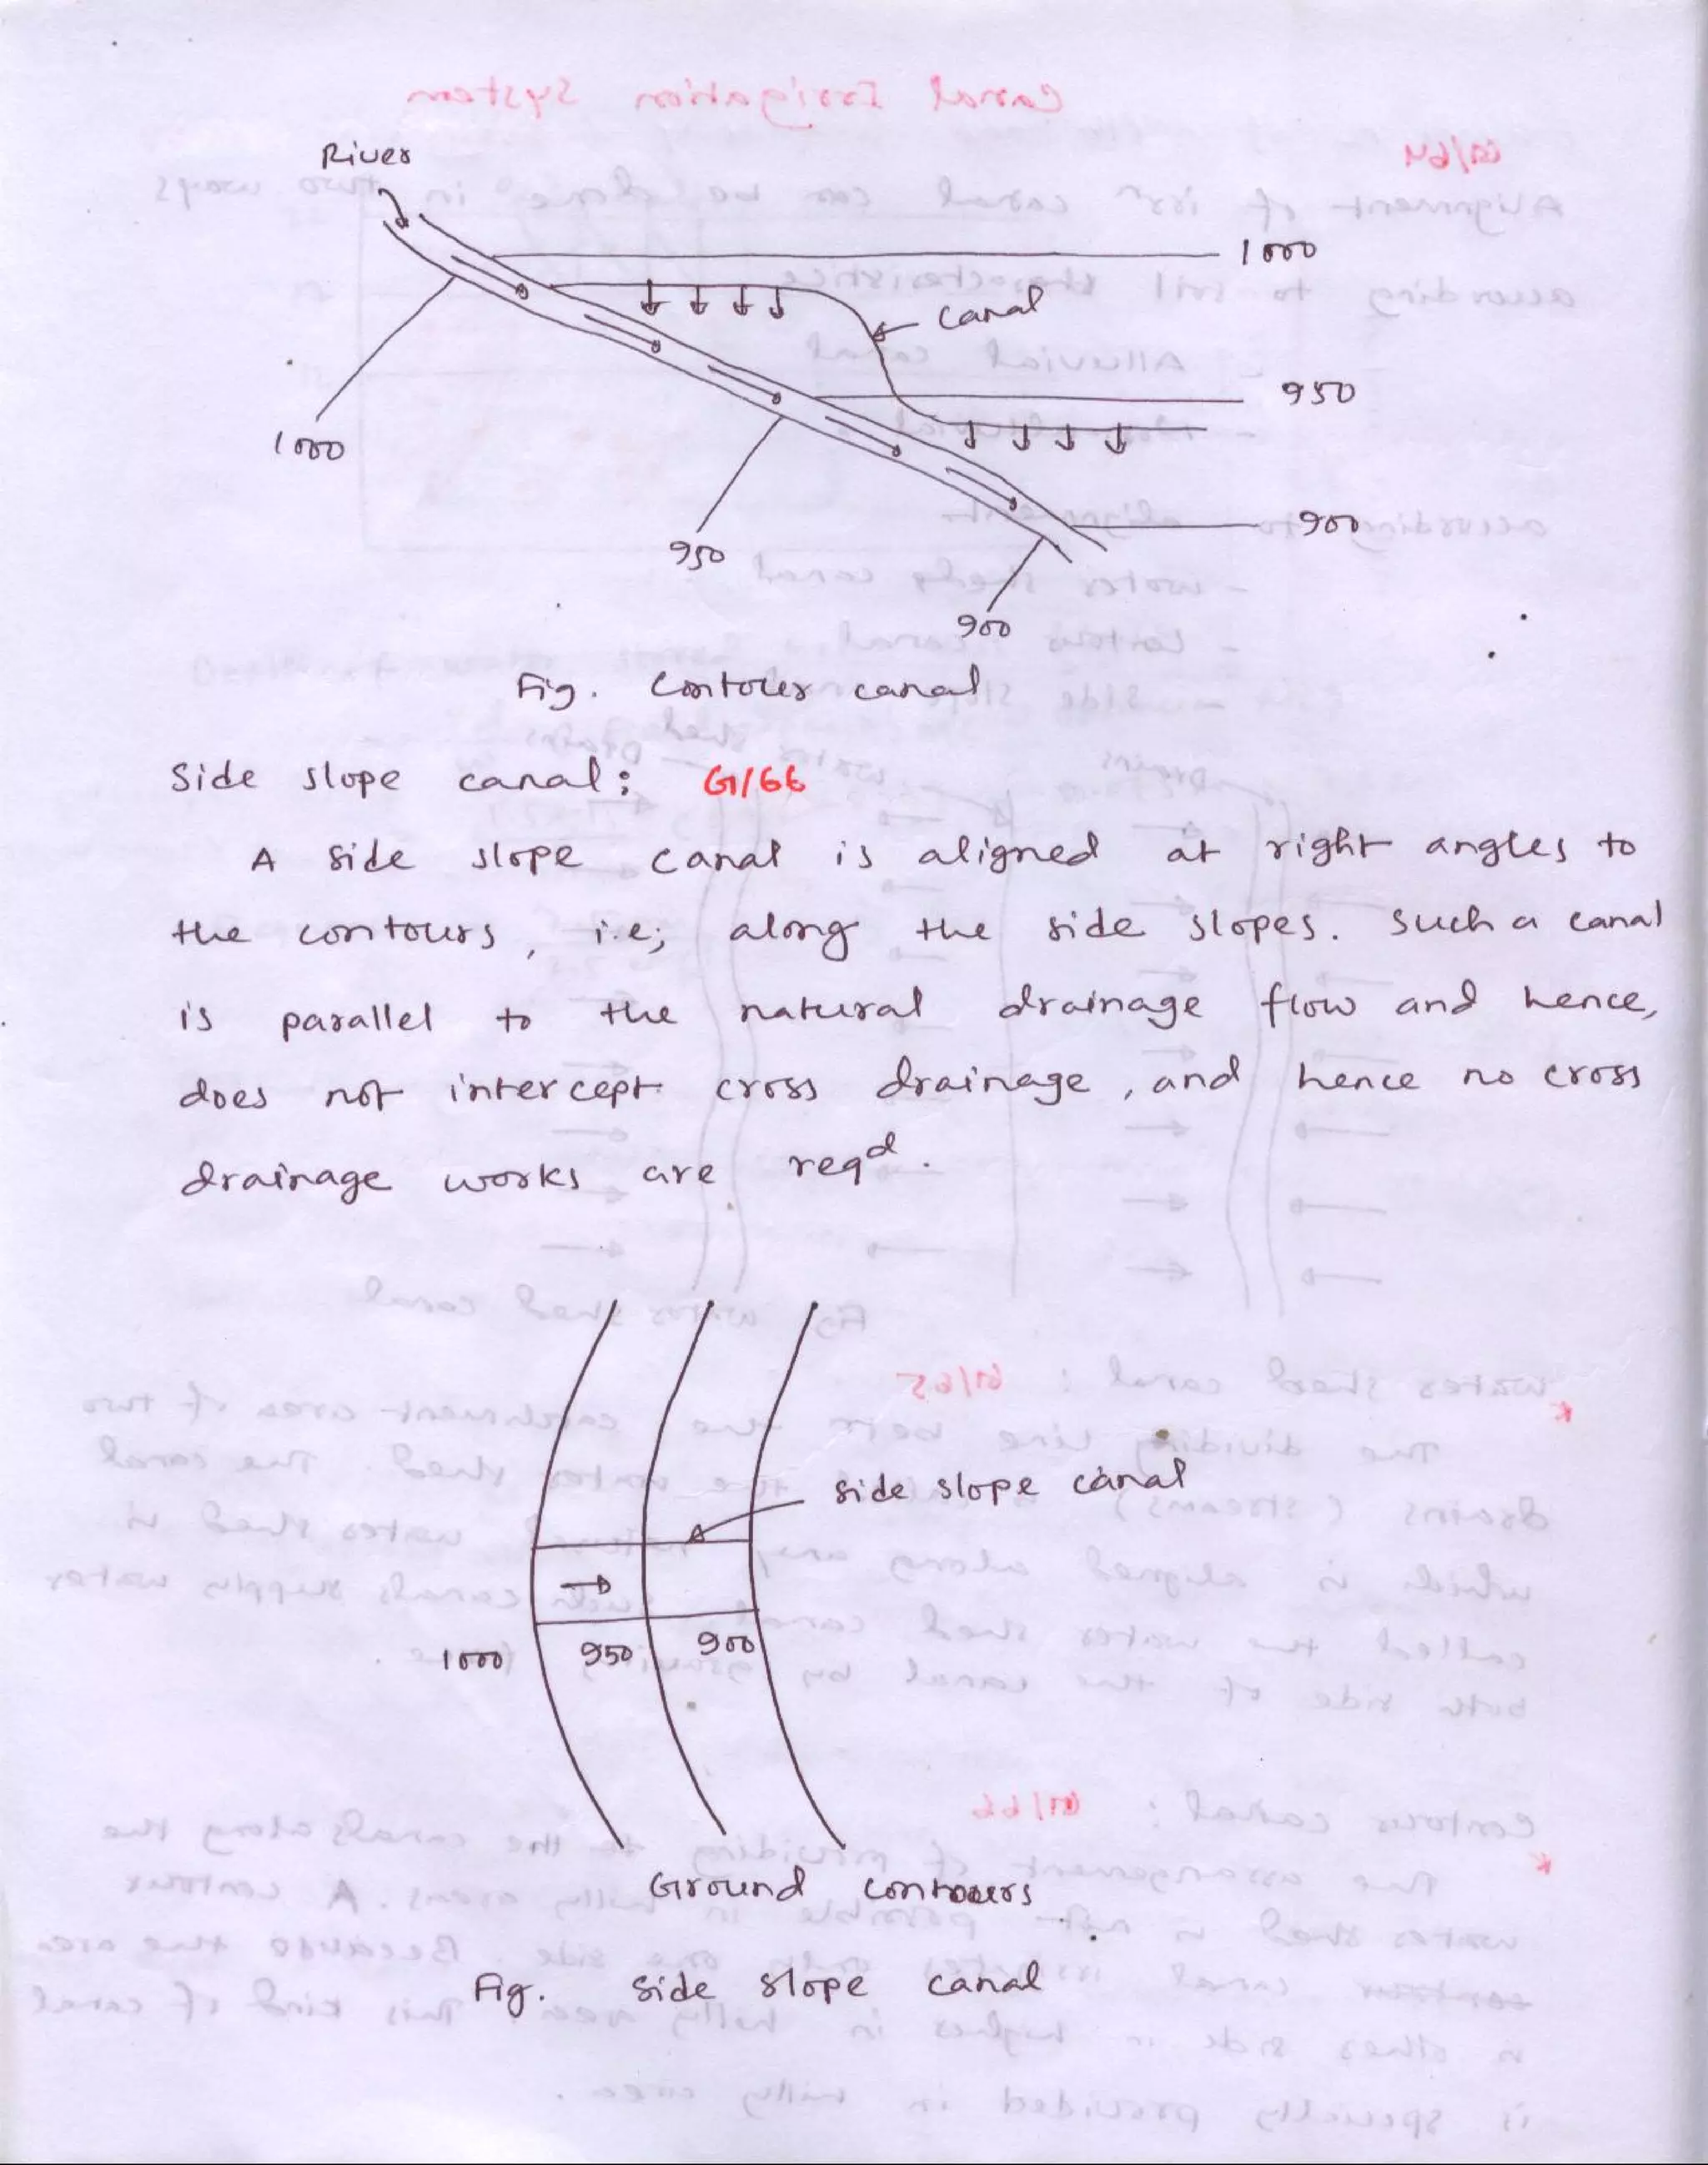 River
1000
Canal
950
1000
950
900
900
Fig. Contour canal
Side slope canal: G/66
A side slope canal is aligned at right angles to
the contours, i.e; along the side slopes. Such a canal
is parallel to the natural drainage flow and hence,
does not intercept cross drainage, and hence no cross
drainage works are reqd.
side slope canal
1000 950 900
Ground contours
Fig. Side slope canal